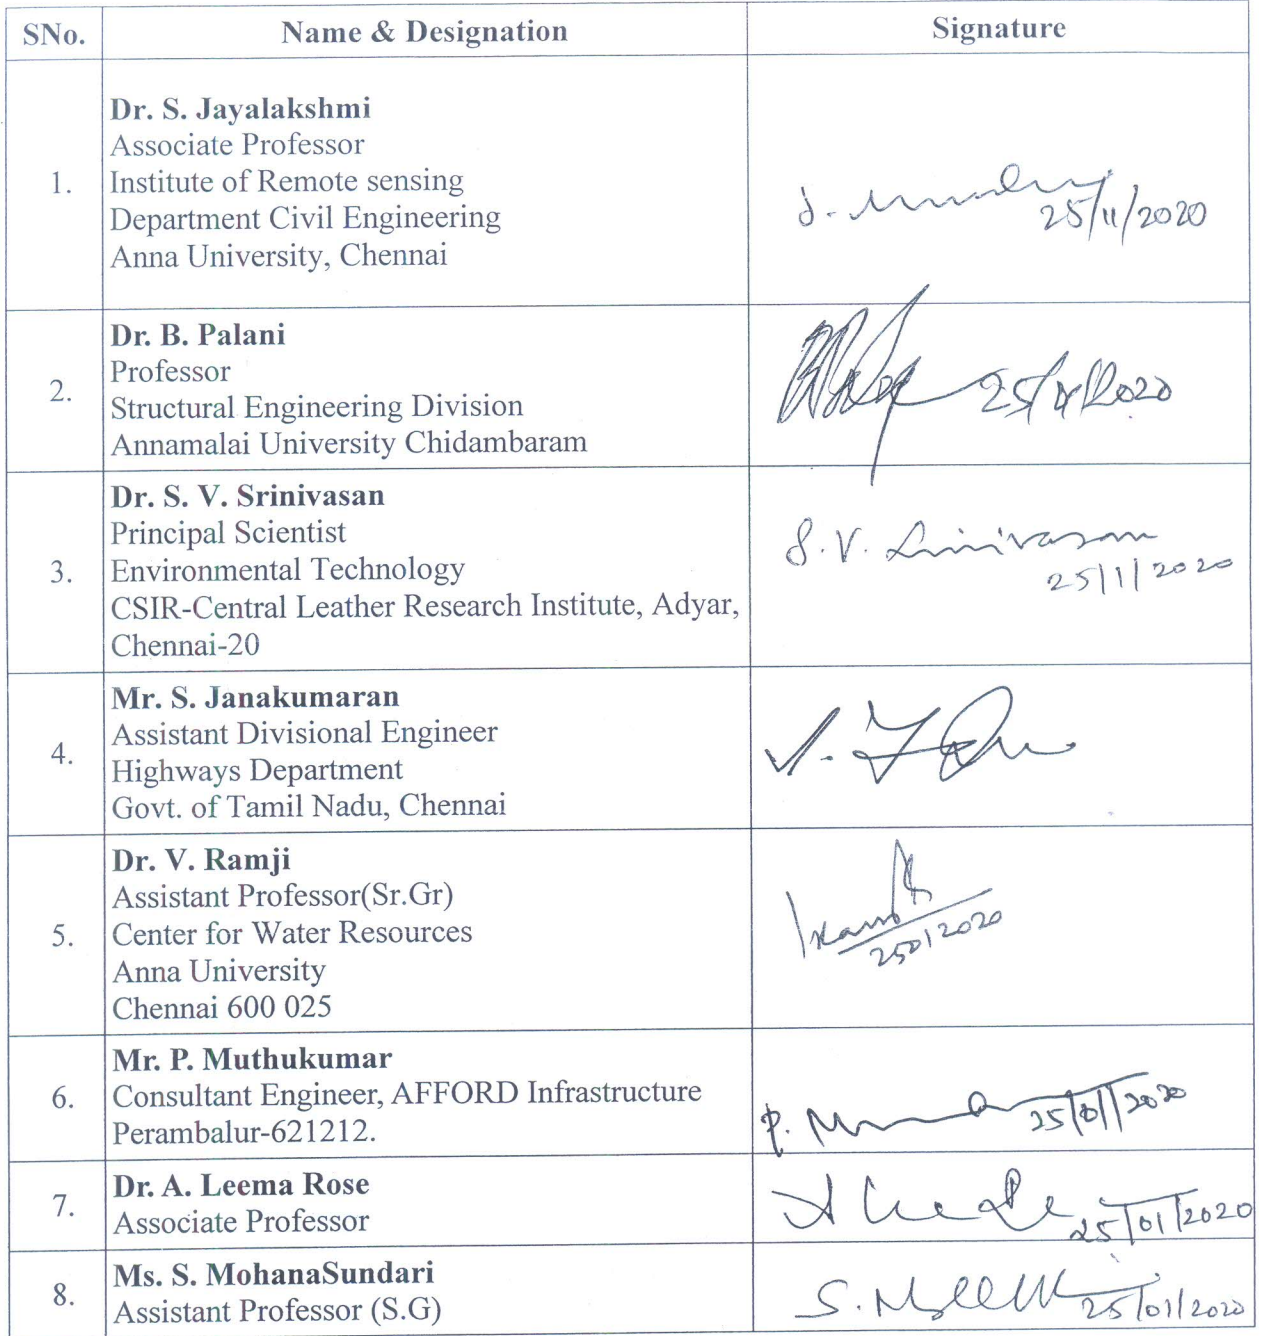 SNo. Name & Designation Signature
1.
Dr. S. Jayalakshmi
Associate Professor
Institute of Remote sensing
Department Civil Engineering
Anna University, Chennai
25/11/2020
2.
Dr. B. Palani
Professor
Structural Engineering Division
Annamalai University Chidambaram
3.
Dr. S. V. Srinivasan
Principal Scientist
Environmental Technology
CSIR-Central Leather Research Institute, Adyar,
Chennai-20
S.V. Srinivasan
25/1/2020
4.
Mr. S. Janakumaran
Assistant Divisional Engineer
Highways Department
Govt. of Tamil Nadu, Chennai
5.
Dr. V. Ramji
Assistant Professor(Sr.Gr)
Center for Water Resources
Anna University
Chennai 600 025
6.
Mr. P. Muthukumar
Consultant Engineer, AFFORD Infrastructure
Perambalur-621212.
25/01/2020
7.
Dr. A. Leema Rose
Associate Professor
25/01/2020
8.
Ms. S. MohanaSundari
Assistant Professor (S.G)
25/01/2020